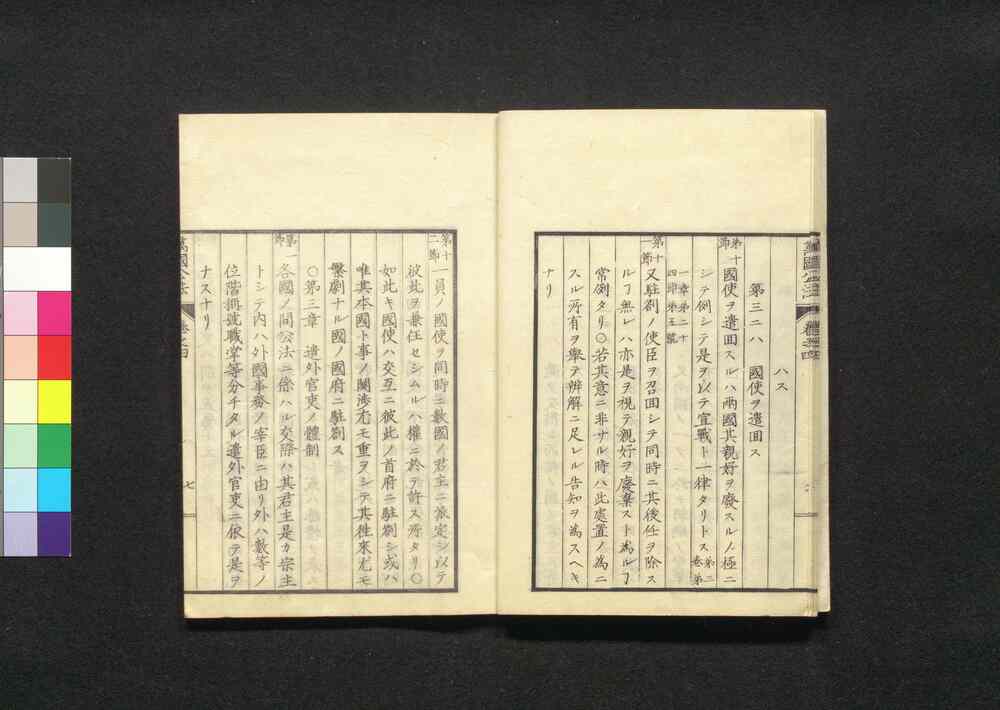 ハス
第三ニハ　國使ヲ遣囬ス
第十節 國使ヲ遣囬スルハ兩國其親好ヲ廢スルノ極ニ
シテ例シテ是ヲ以テ宣戰ト一律タリトス 第三卷第
一章第二十四節第五號
第十一節 又駐劄ノ使臣ヲ召囬シテ同時ニ其後任ヲ除ス
ルヿ無レハ亦是ヲ視テ親好ヲ廢棄スト為ルヿ
常例タリ〇若其意ニ非サル時ハ此處置ノ為ニ
スル所有ヲ擧テ辨解ニ足レル告知ヲ為スヘキ
ナリ
第十二節 一員ノ國使ヲ同時ニ數國ノ君主ニ派定シ以テ
彼此ヲ兼任セシムルハ權ニ於テ許ス所タリ〇
如此キ國使ハ交互ニ彼此ノ首府ニ駐劄シ或ハ
唯其本國ト事ノ関渉尤モ重ヲシテ其徃來尤モ
繁劇ナル國ノ國府ニ駐劄ス
〇第三章　遣外官吏ノ體制
第一節 各國ノ間公法ニ係ハル交際ハ其君主是カ宗主
トシテ内ハ外國事務ノ宰臣ニ由リ外ハ數等ノ
位階稱號職掌等分チタル遣外官吏ニ依テ是ヲ
ナスナリ
萬國公法　卷之四　七